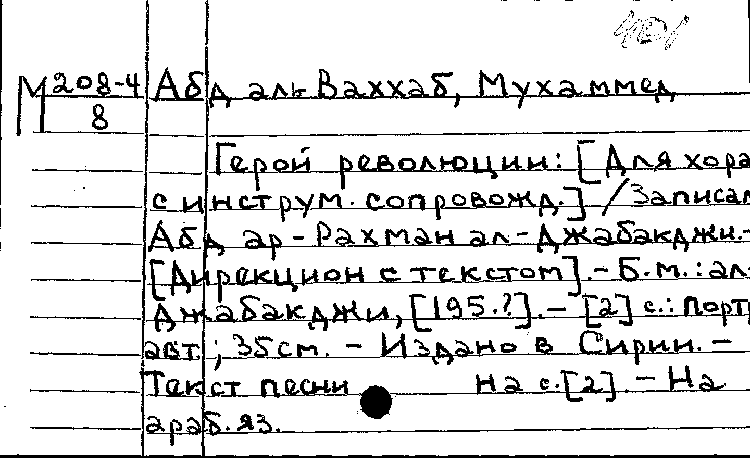 М 208-4 Абд аль-Ваххаб, Мухаммед
8
Герой революции: [Для хора
с инструм. сопровожд.] / Записал
Абд ар-Рахман ал-Джабакджи.-
[Дирекцион с текстом].- Б.м.: ал-
Джабакджи, [195.?].- [2] с.: портр.
авт.; 35см. - Издано в Сирии. -
Текст песни на с.[2]. - На
араб. яз.